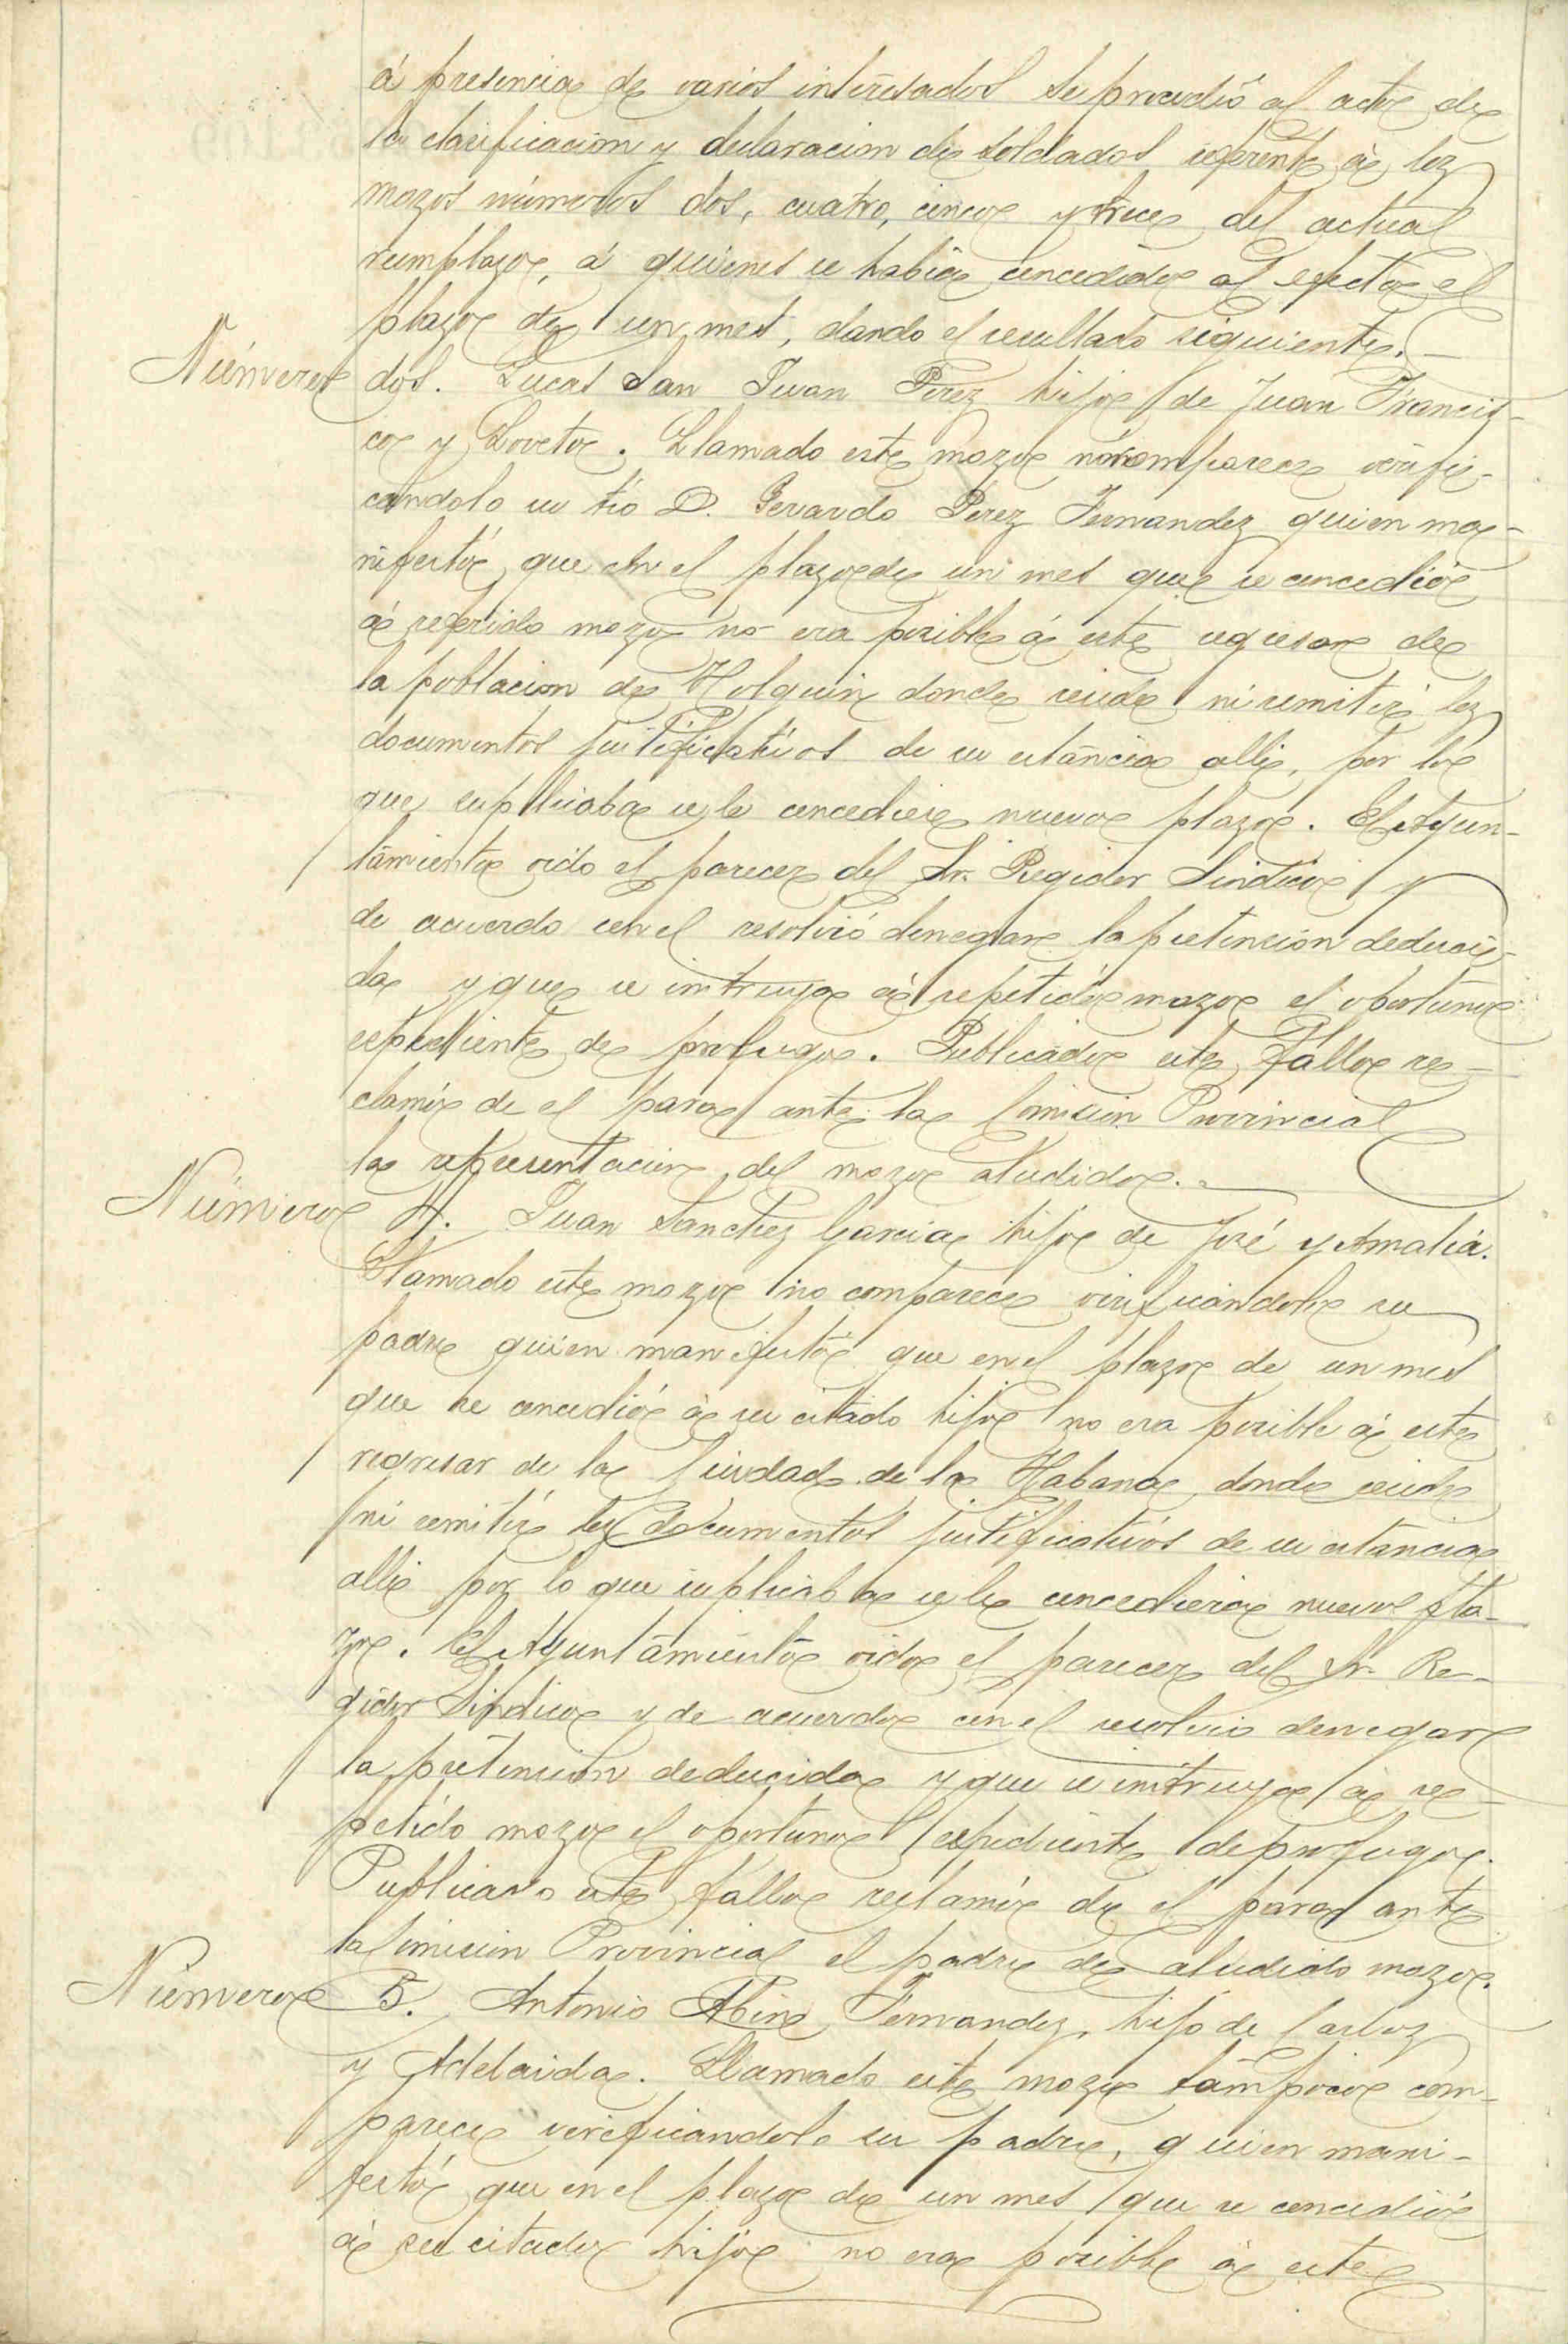 á presencia de varios interesados se procedió al acto de
la clasificacion y declaracion de soldados referente á los
mozos números dos, cuatro, cinco y trece del actual
reemplazo, á quienes se habia concedido al efecto el
plazo de un mes, dando el resultado siguiente.
Número dos. Lucas San Juan Perez hijo de Juan Francis-
co y Loreto. Llamado este mozo no comparece verifi-
candolo su tío D. Gerardo Perez Fernandez quien ma-
nifestó que en el plazo de un mes que se concedió
á referido mozo no era posible á este regresar de
la poblacion de Holguin donde reside ni remitir los
documentos justificativos de su estancia alli, por lo
que suplicaba se le concediese nuevo plazo. El Ayun-
tamiento oido el parecer del Sr. Regidor Sindico y
de acuerdo con el resolvió denegar la pretension deduci-
da y que se instruya á repetido mozo el oportuno
espediente de profugo. Publicado este fallo re-
clamó de el para ante la Comision Provincial
la representacion del mozo aludido.
Número 4. Juan Sanchez Garcia hijo de José y Amalia.
Llamado este mozo no comparece verificandolo su
padre quien manifestó que en el plazo de un mes
que se concedió á su citado hijo no era posible á este
regresar de la Ciudad de la Habana donde reside
ni remitir los documentos justificativos de su estancia
alli por lo que suplicaba se le concediera nuevo pla-
zo. El Ayuntamiento oido el parecer del Sr. Re-
gidor Sindico y de acuerdo con el resolvio denegar
la pretension deducida y que se instruya á re-
petido mozo el oportuno espediente de profugo.
Publicado este fallo reclamó de el para ante
la Comision Provincial el padre de aludido mozo.
Número 5. Antonio Abin Fernandez, hijo de Carlos
y Adelaida. Llamado este mozo tampoco com-
parece verificandolo su padre, quien mani-
festó que en el plazo de un mes que se concedió
á su citado hijo no era posible á este